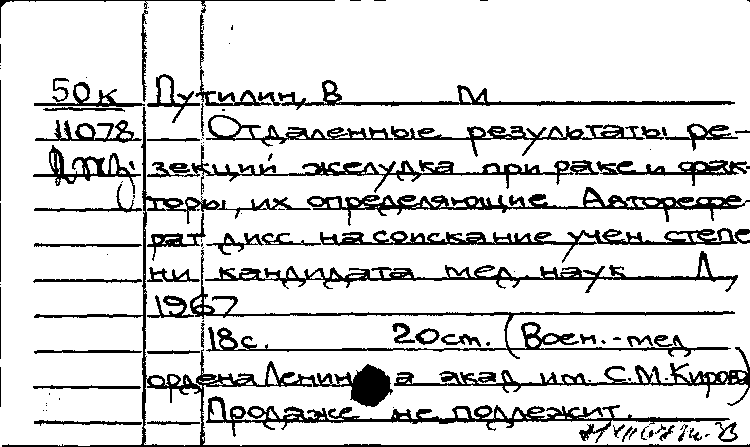 50к Путилин, В М
11078 Отдаленные результаты ре-
зекций желудка при раке и фак-
торы, их определяющие. Авторефе-
рат дисс. на соискание учен. степе
ни кандидата мед. наук Л.,
1967
18с. 20см. (Воен.-мед
ордена Ленина акад им. С.М.Кирова)
Продаже не подлежит.